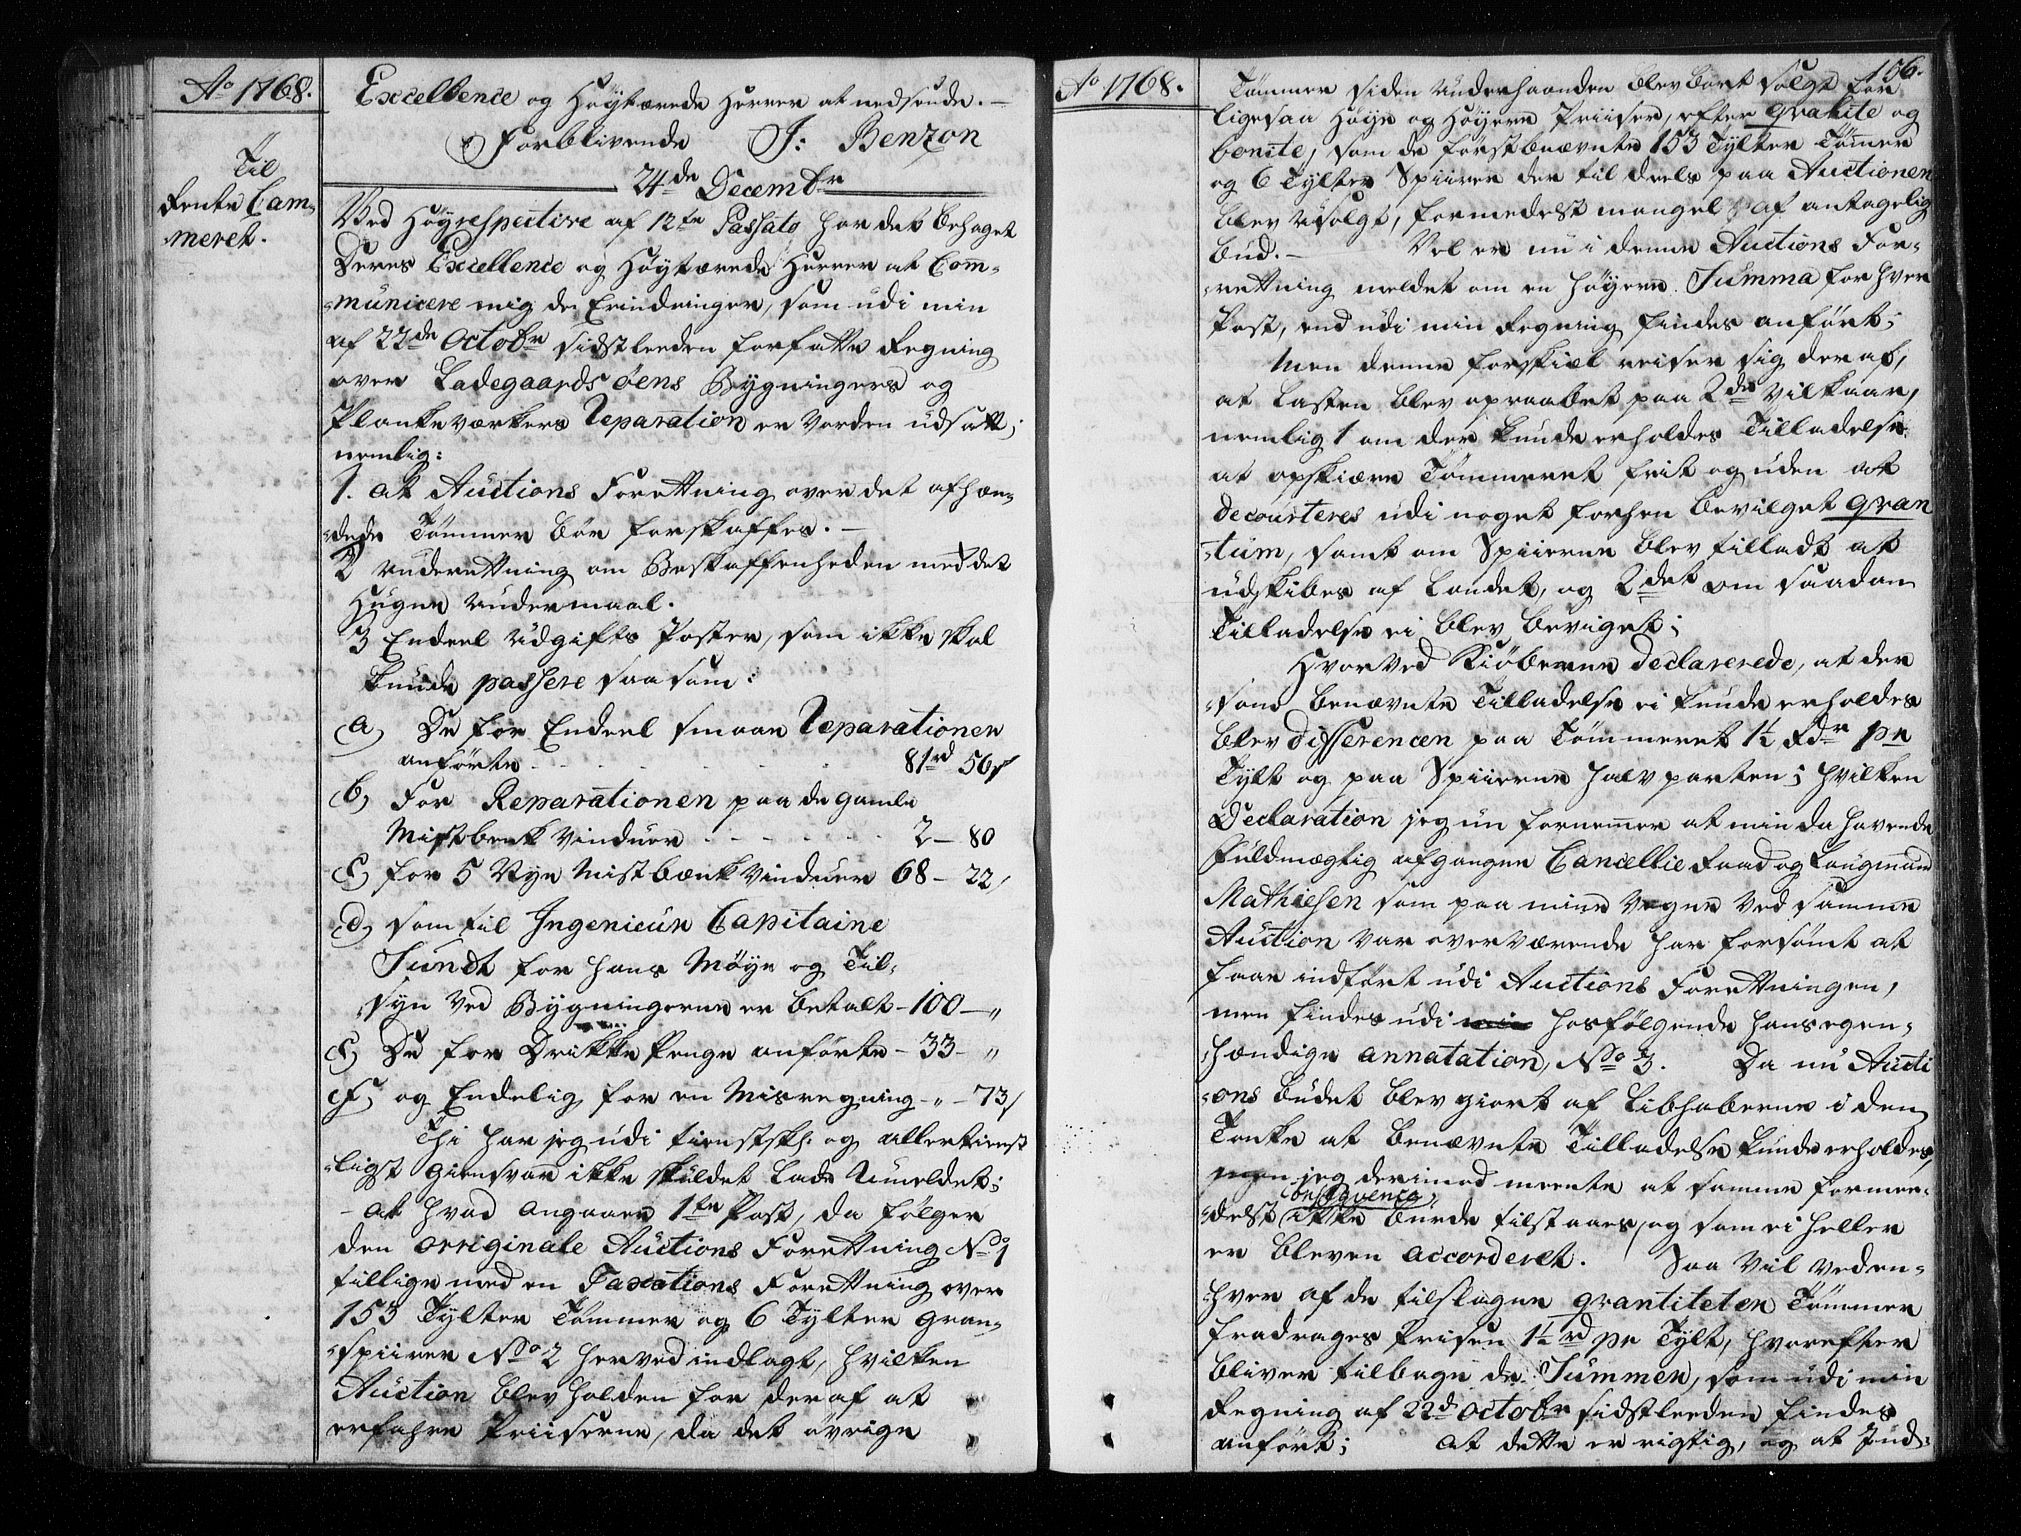 Ao 1768.
Excellence og Høytærede Herrer at nedsende. –
Forblivende J: Benzon
24de Decembr
Til
Rente Cam-
meret.
Ved Høyrespective af 12te Passato har det behaget
Deres Excellence og Høytærede Herrer at Com-
municere mig de Erindringer, som udi min
af 22de Octobr sidstleeden forfatte Regning
over Ladegaards øens Bygningers og
Plankeværkers Reparation er vorden udsatt;
nemlig:
1. at Auctions Forrettning over det afhæn-
dede Tømmer bør forskaffes. –
2 underettning om Beskaffenheden med det
Hugne undermaal.
3 Endeel Udgifts Poster, som ikke skal
kunde passere saasom:
a, De for Endeel smaae Reparationer
anførte 81rd 56s
b, For Reparationen paa de gamle
Mistbenk Vinduer 2 – 80
c, for 5 Nye Mistbænk Vinduer 68 – 22s
d, som til Ingenieur Capitaine
Sundt for hans Møye og Til-
syn ved Bygningerne er betalt – 100 – "
e, De for Drikke Penge anførte – 33 – "
f, og Endelig for en Misregning – " – 73s
Thi har jeg udi tienstskl. og allertienst
ligst giensvar ikke skuldet lade Umeldet;
– at hvad angaaer 1te Post, da følger
den orriginale Auctions Forrettning No 1
tillige med en Taxations Forrettning over
153 Tylter Tømmer og 6 Tylter Gran-
spiirer No 2 herved indlagt, hvilken
Auction blev holden for deraf at
erfahre Priiserne, da det øvrige
Ao 1768.
156.
Tømmer siden underhaanden blev bort solgt for
ligesaa høye og høyere Priiser, efter qvalite og
bonite, som de førstbnævnte 153 Tylter Tømer
og 6 Tylter Spiirer der til deels paa Auctionen
blev usolgt, formedelst mangel af antagelig
bud. – Vel er nu i denne Auctions For-
rettning meldet om en høyere Summa for hver
Post, end udi min Regning findes anført;
Men denne forskiæl reiser sig deraf,
at Lasten blev opraabet paa 2de Vilkaar,
nemlig 1 om der kunde erholdes Tilladelse
at opskiære Tømmeret frit og uden at
decourteres udi noget forhen bevilget qvan
tum, samt om Spiirerne blev tilladt at
udskibes af Landet, og 2det om saadan
Tilladelse ei blev beviliget;
Hvorved Kiøberne declarerede, at der
som benævnte Tilladelse ei kunde erholdes
blev differencen paa Tømmeret 1½ Rdr pr
Tylt og paa Spiirerne halv parten; hvilken
Declaration jeg nu fornemmer at min da havende
Fuldmægtig afgangne Cancellie Raad og Laugmand
Mathiesen som paa mine Vegne ved samme
Auction var overværende har forsømt at
faae indført udi Auctions Forrettningen,
men findes udi hosfølgende hans egen-
hændige annatation, No 3. Da nu Aucti
ons budet blev giort af Libhaberne i den
Tanke at benævnte Tilladelse kunde erholdes,
men jeg derimod meente at samme formee-
delst
ikke burde tilstaaes, og som ei heller
er bleven accorderet. Saa vil veden-
hver af de tilslagne qvantiteter Tømmer
fradrages Prisen 1½ rd pr Tylt, hvorefter
bliver tilbage de Summer, som udi min
Regning af 22de Octobr sidstleeden findes
anført; at dette er rigtig, og at Ind-